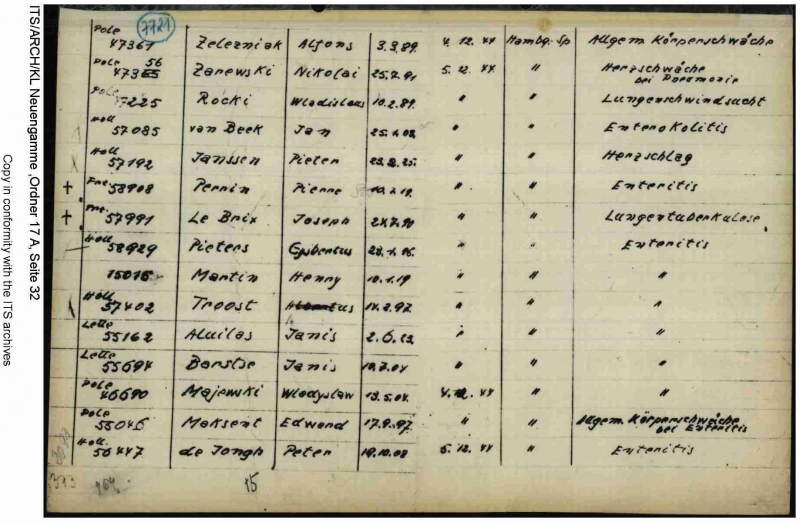 ITS/ARCH/KL Neuengamme, Ordner 17 A, Seite 32
Copy in conformity with the ITS archives
7721
Pole 47361 Zelezniak Alfons 3.3.89. 4.12.44 Hambg-Sp Allgem Körperschwäche
Pole 56 Zarewski Nikolai 5.12.44 " Herzschwäche
bei Pneumonie
Pole Rocki Wladislaus 10.2.89. " " Lungenschwindsucht
Holl 57085 van Beek Jan " " Enterokolitis
Holl 57192 Janssen Pieter " " Herzschlag
+ Frz 58908 Perrin Pierre " " Enteritis
+ Frz. 57991 Le Brix Joseph " " Lungentuberkulose
Holl 58929 Pieters " " Enteritis
15015 Martin Henry 10.1.19 " " "
Holl 57402 Troost 14.2.97 " " "
Lette 55162 Aluilas Janis 2.6.23 " " "
Lette 55694 Barstse Janis " " "
Pole 46690 Majewski Wladyslaw 13.5.04 4.12.44 " "
Pole 55046 Maksent Edward 17.9.97 " " Allgem. Körperschwäche
bei Enteritis
Holl. 56447 de Jongh Peter 19.10.08 5.12.44 " Enteritis
313 15